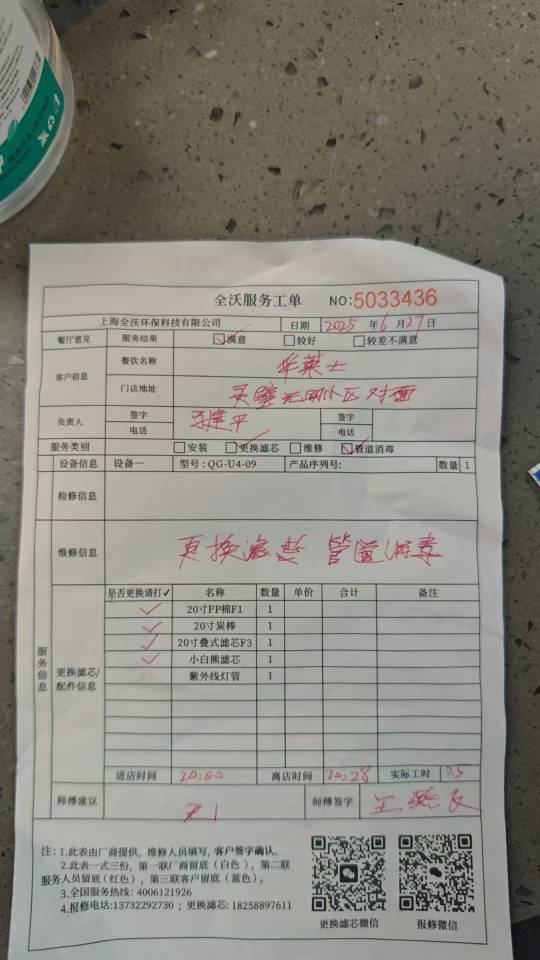 全沃服务工单 NO:5033436
上海全沃环保科技有限公司 日期 2025 年 6 月 27 日
餐厅意见 服务结果 满意 较好 较差不满意
客户信息 餐饮名称 华莱士
门店地址 灵璧 小区对面
负责人 签字 签字
电话 电话
服务类别 安装 更换滤芯 维修 管道消毒
设备信息 设备一 型号:QG-U4-09 产品序列号: 数量 1
检修信息
维修信息 更换滤芯 管道消毒
服务信息
更换滤芯/配件信息
是否更换请打✓ 名称 数量 单价 合计 备注
✓ 20寸PP棉F1 1
✓ 20寸炭棒 1
✓ 20寸叠式滤芯F3 1
✓ 小白熊滤芯 1
紫外线灯管 1
进店时间 20:00 离店时间 20:28 实际工时 25
师傅建议 师傅签字 王
注：1.此表由厂商提供，维修人员填写, 客户签字确认。
2.此表一式三份，第一联厂商留底（白色），第二联
服务人员留底(红色），第三联客户留底（蓝色）。
3.全国服务热线: 4006121926
4.报修电话:13732292730；更换滤芯: 18258897611
更换滤芯微信 报修微信